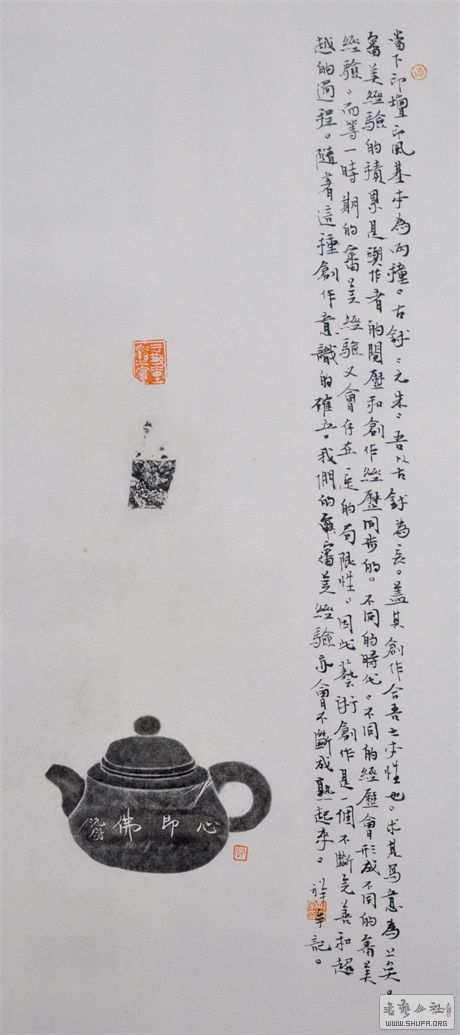 當下印壇印風基本為兩種。古鉨、元朱、吾以古鉨為長。蓋其創作合吾之本性也。求其寫意為上矣。
審美經驗的積累是與作者的閱歷和創作經歷同步的。不同的時代。不同的經歷會形成不同的審美
經驗。而每一時期的審美經驗又會存在一定的局限性。因此藝術創作是一個不斷完善和超
越的過程。隨著這種創作意識的確立。我們的審美經驗亦會不斷成熟起來。
記。
心即佛
WWW.SHUFA.ORG